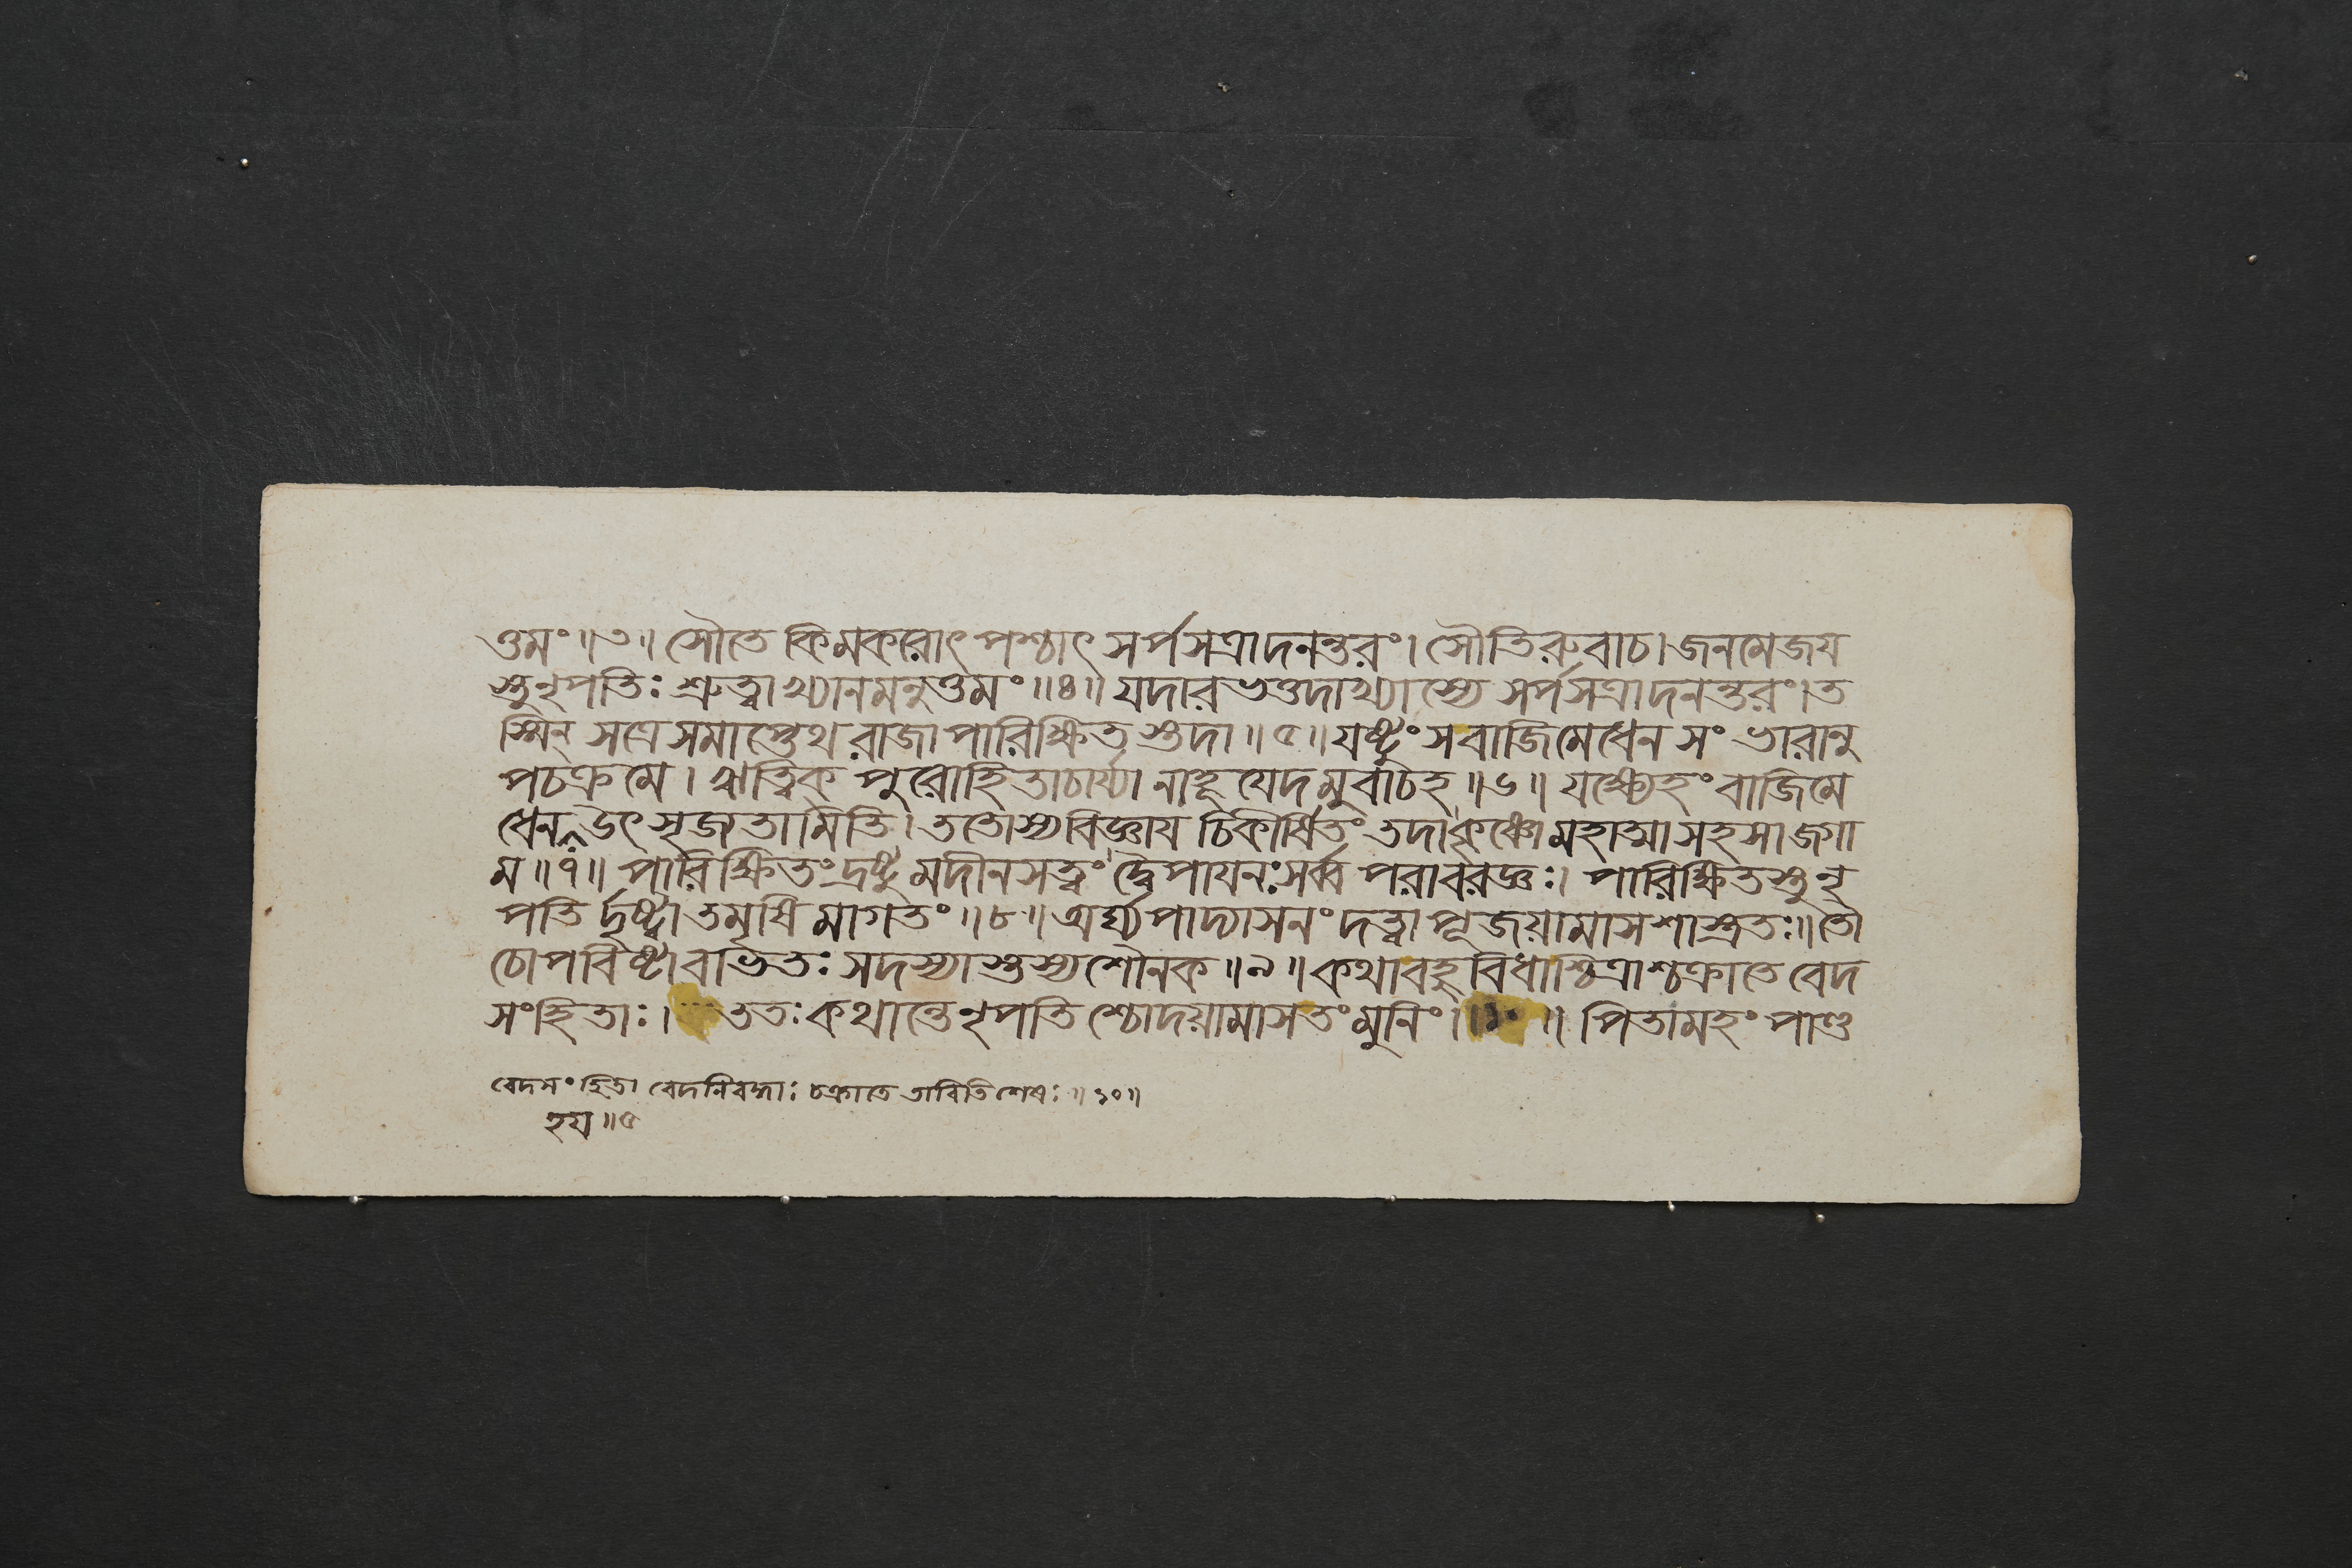 ত্তমং॥৩॥ সৌতে কিমকরোৎ পশ্চাৎ সর্পসত্রাদনন্তরং। সৌতিরুবাচ। জনমেজয
স্তুনৃপতিঃ শ্রুত্বাখ্যানমনুত্তমং॥৪॥ যদারভত্তদাখ্যাস্যে সর্পসত্রাদনন্তরং।ত
স্মিন্ সত্রেসমাপ্তেথ রাজা পারিক্ষিত স্তুদা॥৫॥ যষ্টুংসবাজিমেধেন সংভারানু
পচক্রমে। ঋত্বিক্ পুরোহিতাচার্য্যা নাহূযেদমুবাচহ॥৬॥ যক্ষ্যেহং বাজিমে
ধেন উৎসৃজ্যতামিতি। ততোস্যবিজ্ঞায চিকীর্ষিতং তদা কৃষ্ণো মহাত্মা সহসাজগা
ম॥৭॥ পারিক্ষিতং দ্রষ্টুমদীনসত্ত্বং দ্বৈপাযনঃ সর্ব্ব পরাবরজ্ঞঃ। পারিক্ষিতস্তুনৃ
পতি র্দৃষ্ট্বাতমৃষি মাগতং॥৮॥ অর্ঘ্যপাদ্যাসনং দত্ত্বা পূজয়ামাসশাস্ত্রতঃ॥তৌ
চোপবিষ্টাবভিতঃ সদস্যাস্তস্যশৌনক॥৯॥ কথাবহুবিধাশ্চিত্রাশ্চক্রাতে বেদ
সংহিতাঃ। ততঃ কথান্তেনৃপতি শ্চোদয়ামাসতংমুনিং॥১০॥ পিতামহং পাণ্ড
বেদসংহিতা বেদনিবদ্ধাঃ চক্রাতে তাবিতি শেষঃ॥১০॥
হয॥৫